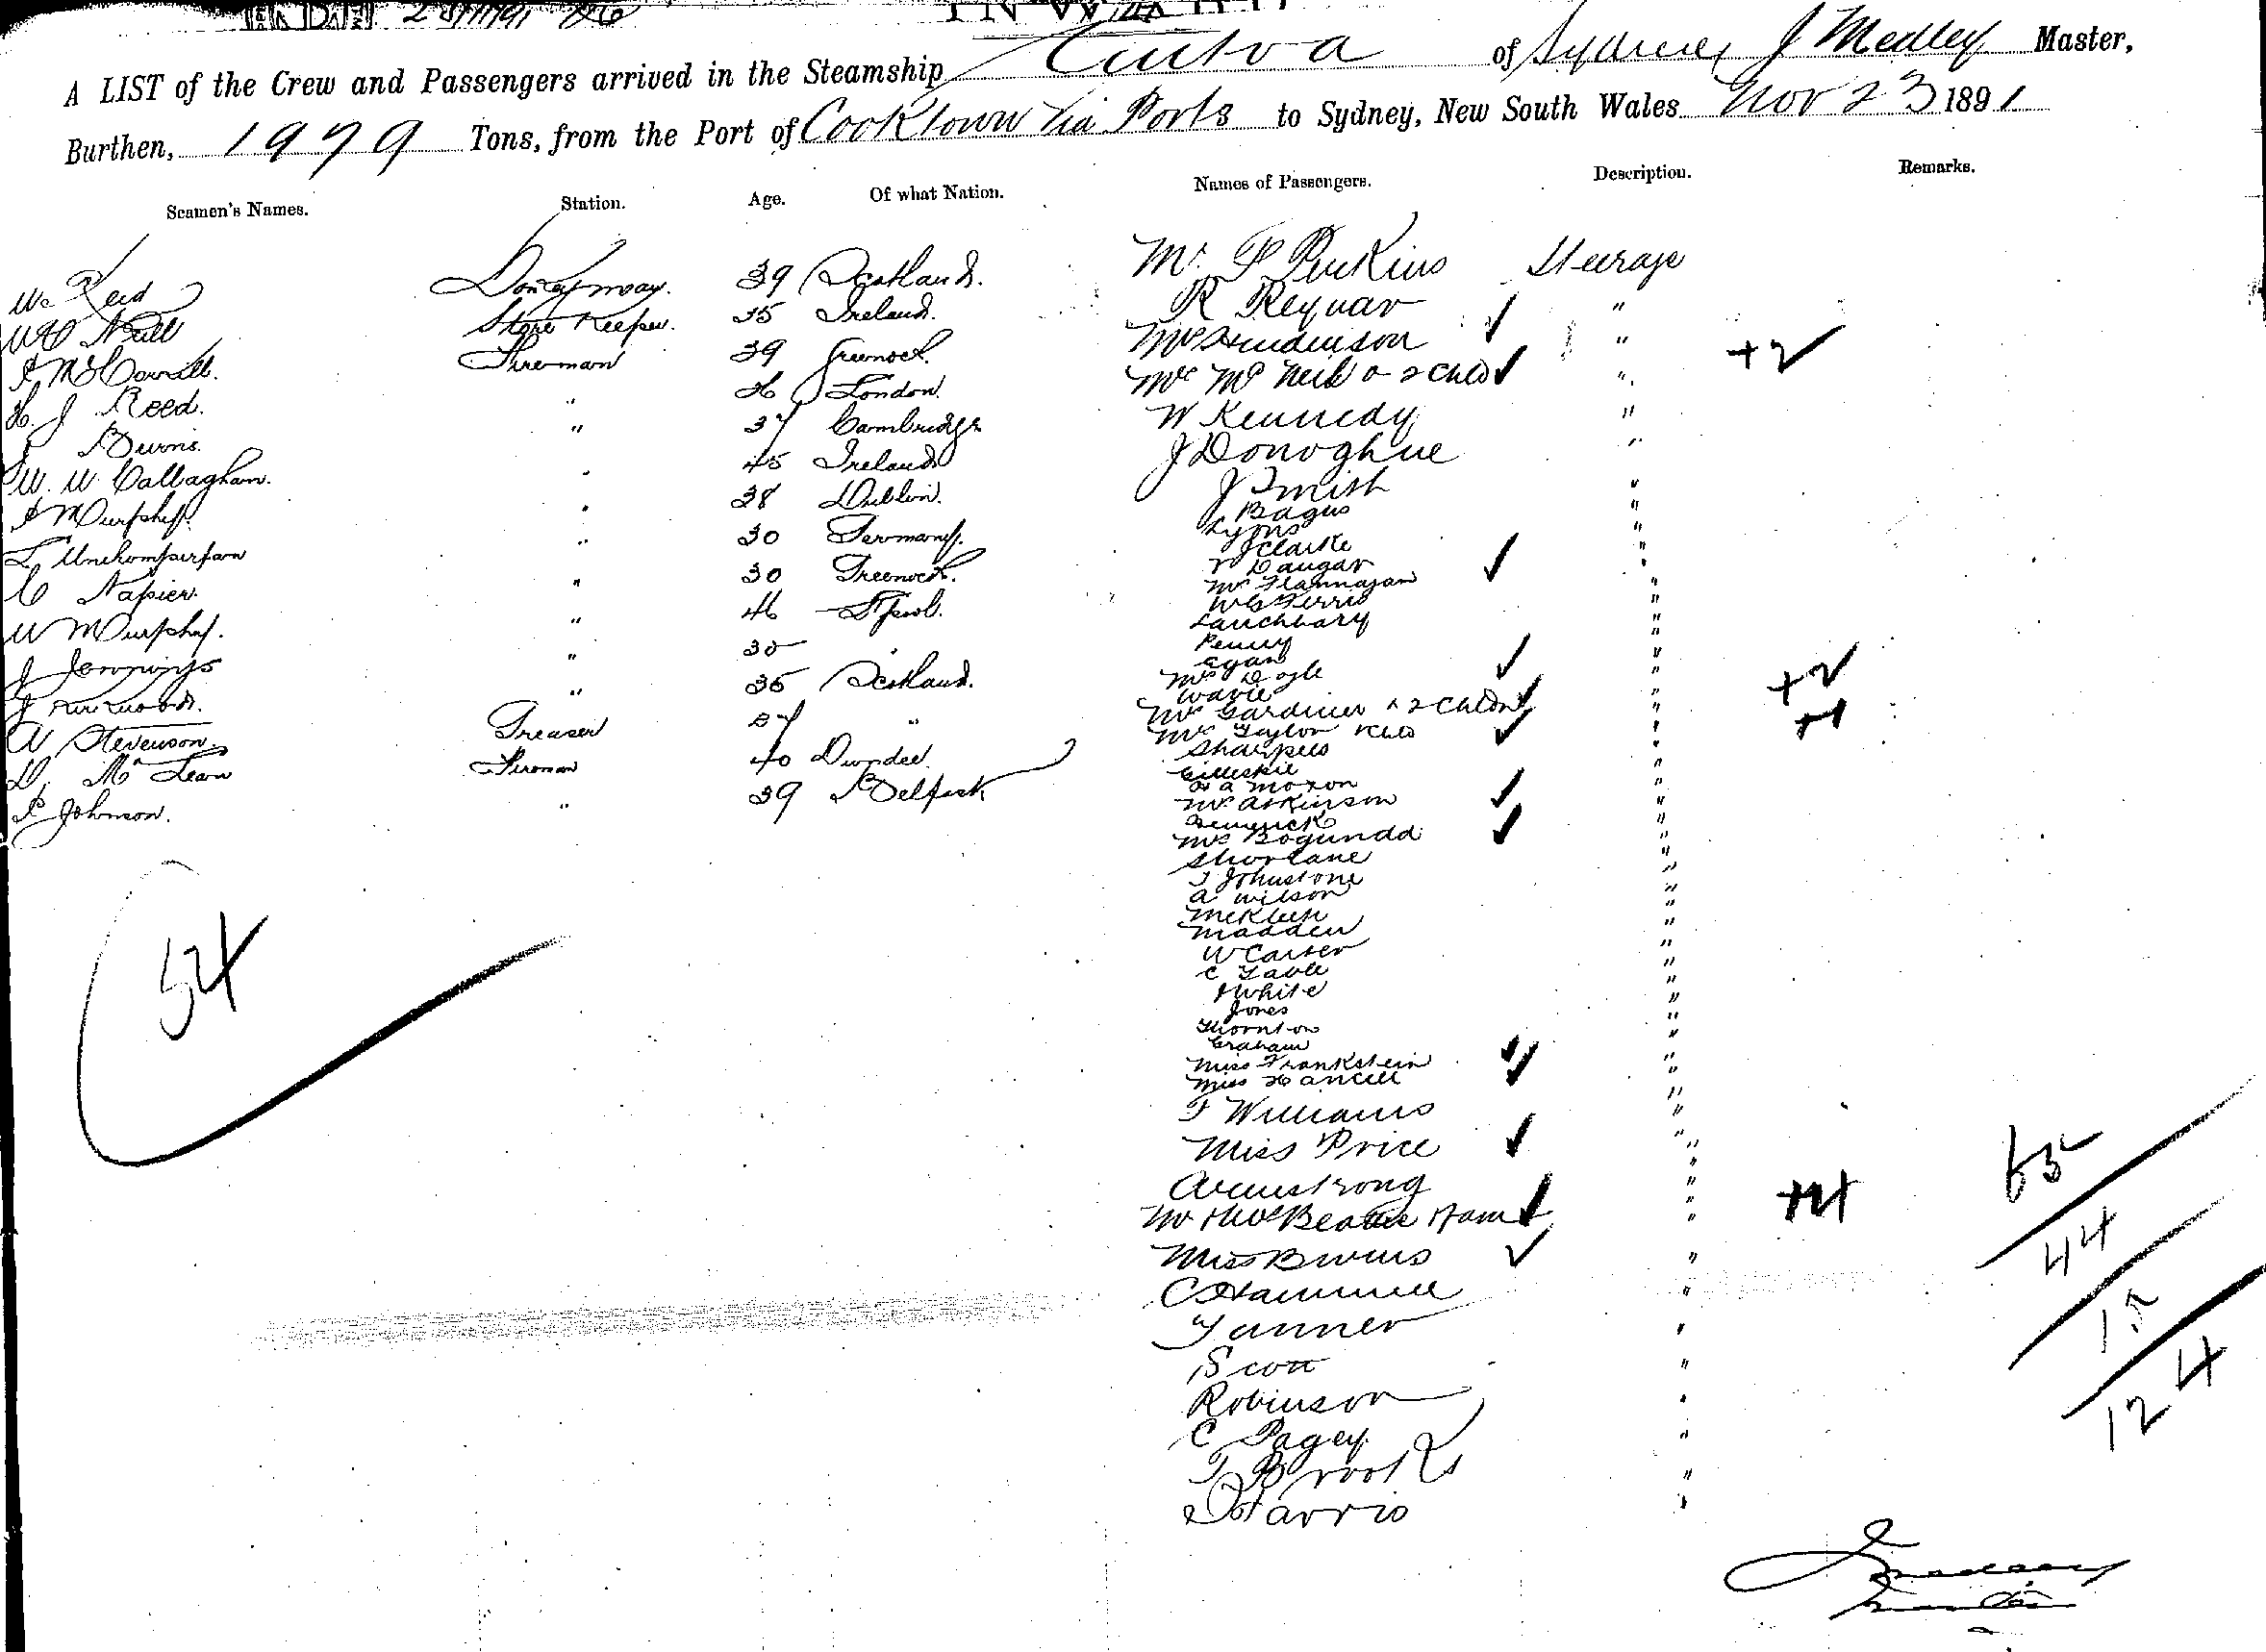 A LIST of the Crew and Passengers arrived in the Steamship of Sydney J Medley Master,
Burthen, 1979 Tons, from the Port of Cooktown via Ports to Sydney, New South Wales Nov 23 1891
Seamen's Names. Station. Age. Of what Nation. Names of Passengers. Description. Remarks.
Reid 39 Scotland.
Neill Store Keeper. 35 Ireland.
Fireman 39 Greenock.
H. J Reed. " 26 London.
Burns. " 37 Cambridge
W. W. Callaghan. " 45 Ireland
Murphy. " 28 Dublin.
" 30 Germany.
C Napier. " 30 Greenock.
W Murphy. " 46 L'pool.
J Jennings " 30 "
J Kirkwood. " 35 Scotland.
A Stevenson. Greaser 27 "
D. Mc Lean Fireman 40 Dundee.
P Johnson. " 39 Belfast
54
Mr. P Perkins Steerage
R Requar "
Mrs Henderson "
Mrs Mc Neil & 2 Child " +2
W Kennedy "
J Donoghue "
J Smith "
Bagus "
Lyons "
J Clarke "
Daugar "
Mrs Flannagan "
W G Ferris "
Lanchbary "
Penny "
Egan "
Mrs Doyle "
Mrs Gardiner & 2 Childn " +2
Mrs Taylor & Child " +1
Sharples "
Gilleskie "
Moxon "
Mrs Atkinson "
Mrs Bogundd "
Shorlane "
T Johnstone "
A Wilson "
Madden "
W Carter "
C Table "
J White "
Jones "
Thornton "
Graham "
Miss Frankstein "
Miss Hancill "
F Williams "
Miss Price "
Armstrong "
Mr & Mrs Beattie & fam " +4
Miss Bivins "
C Hammill "
Tanner "
Scott "
Robinson "
C Pagey "
T Brooks "
Harris "
65
44
15
124